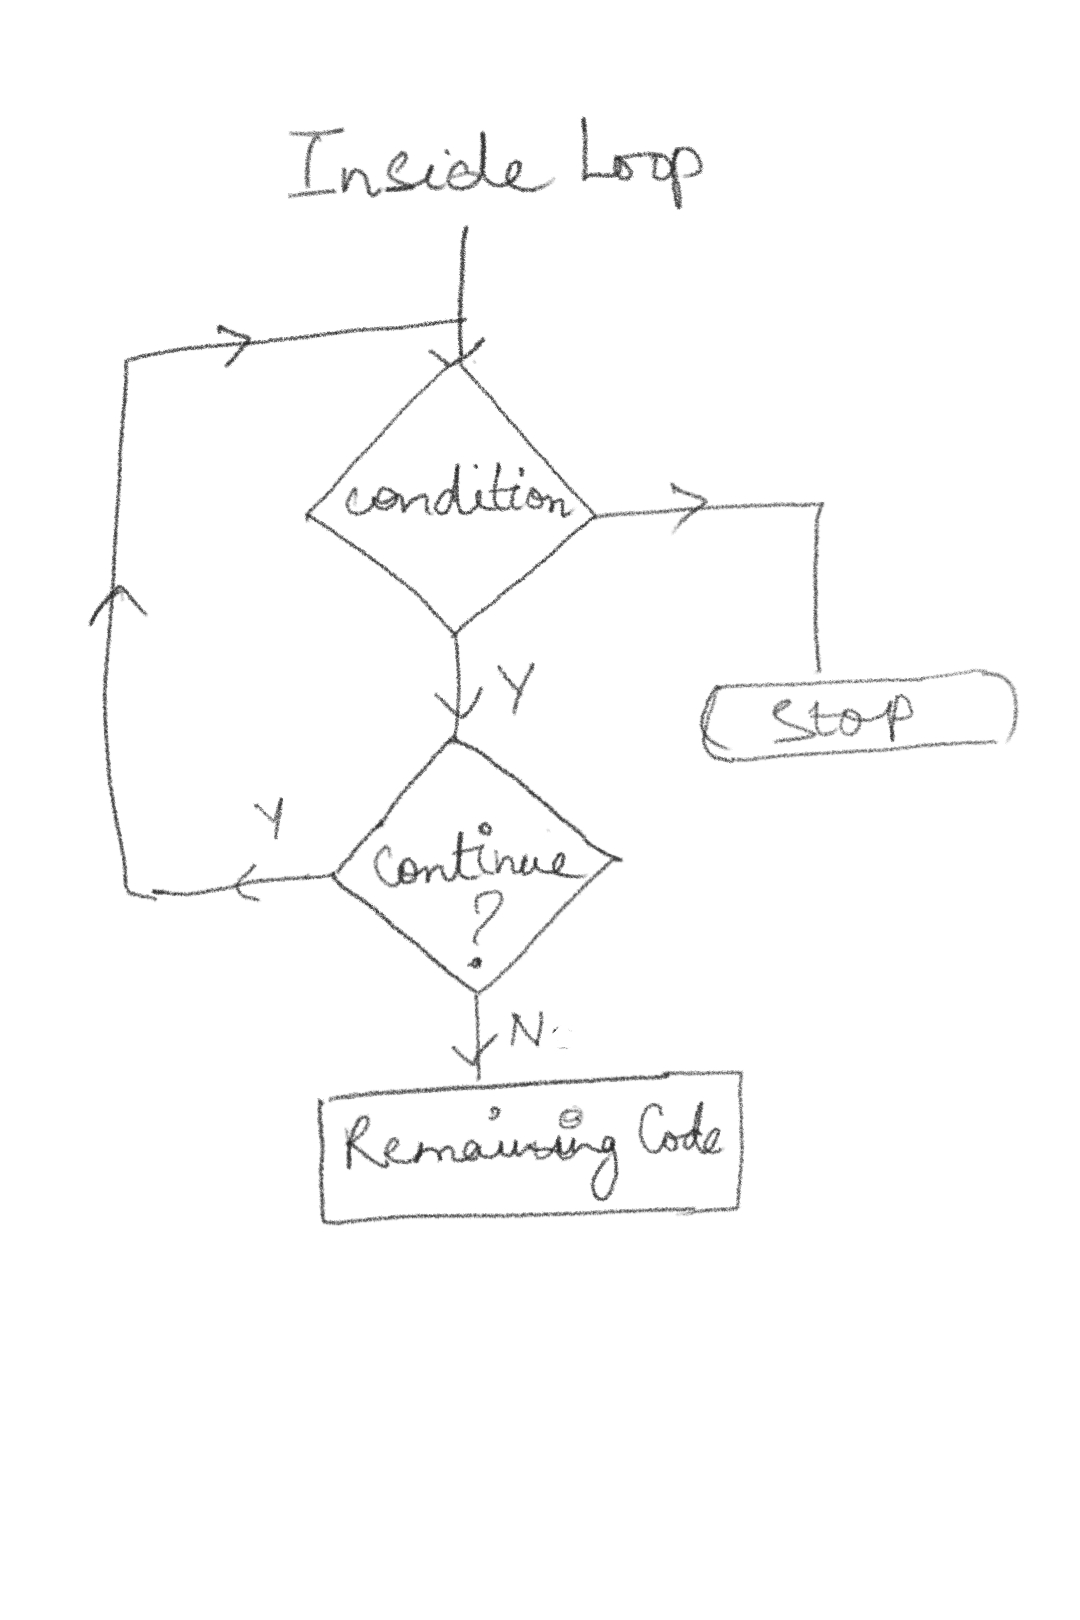 Inside Loop
condition
Y
Stop
Y
Continue
?
N
Remaining Code